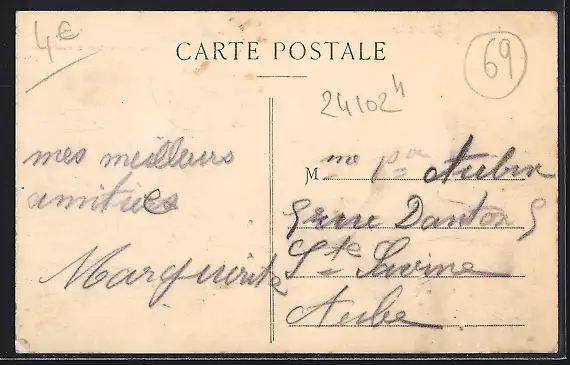 4€
CARTE POSTALE
69
24102h
mes meilleurs
amitiés
Marguerite
Mme Aubin
5 rue Danton 5
Ste Savine
Aube